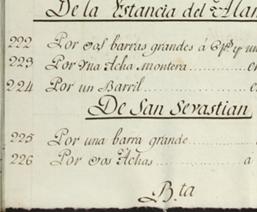 De la Estancia del
222 Por dos barras grandes á
223 Por Vna Acha montera
224 Por un Barril
De San Sevastian
225 Por una barra grande
226 Por dos Achas a
B.ta